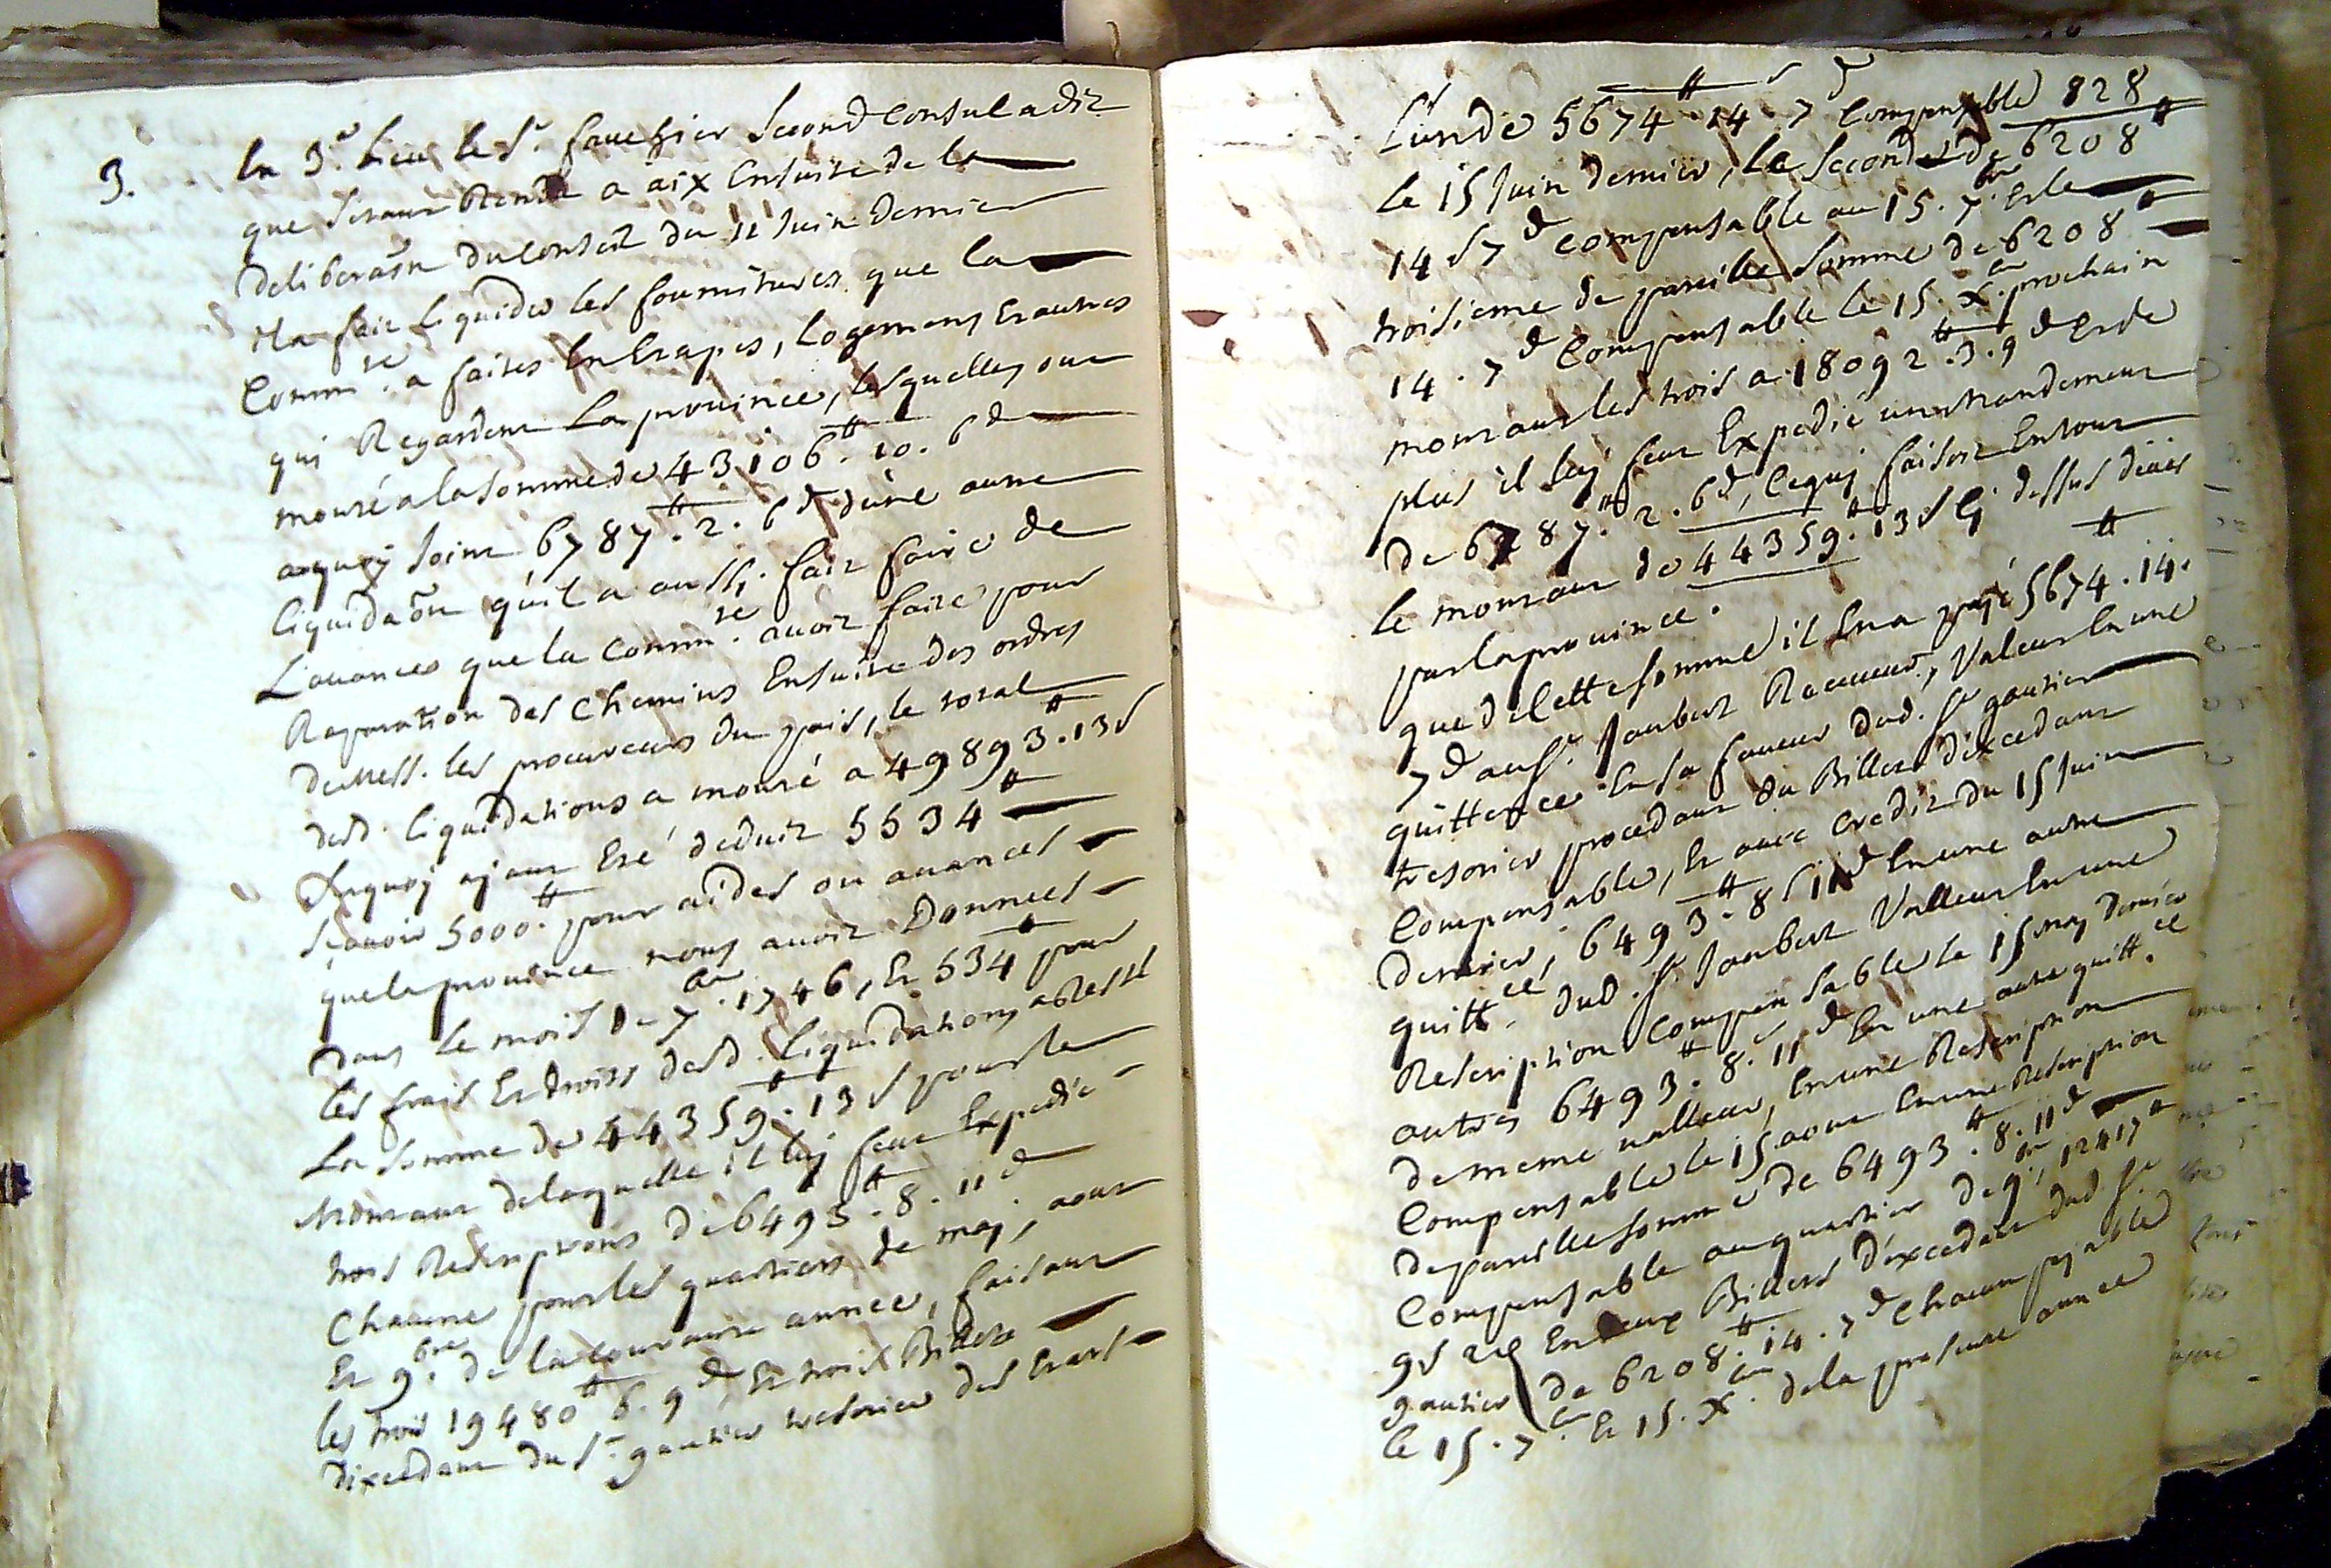 3. En 3.e Lieu le Sr. fauchier Second Consul a dit
que Setant Rendu a aix Ensuite de la
deliberaōn du Conseil du 11 Juin dernier
il a fait liquider les fournitures que la
Commté. a faites En Etapes, Logemens Et autres
qui Regardent La province, lesquelles ont
monté a la Somme de 43106.₶ 10. 6 d
a quoy Joint 6787.₶ 2. 6 d d'une autre
liquidaōn qu'il a aussi fait faire de
L'avance que la Commté. avoit faite pour
Reparation des Chemins Ensuite des ordres
de Mess. les procureurs du pais, le total
desd. liquidations a monté a 49893.₶ 13 s
Surquoy ayant Eté deduit 5534₶
Scavoir 5000.₶ pour aides ou avances
que la province nous avoit Données
dans le mois de 7bre. 1746, Et 534₶ pour
les frais Et droits desd. liquidations
La Somme de 44359.₶ 13 s pour le
Montant de laquelle il luy feut Expedié
trois Rescriptions de 6493₶. 8. 11 d
Chacune pour les quartiers de may, aout
Et 9bre. de la courante année, faisant
les trois 19480₶ 6. 9 d, Et trois Billets
d'excedant du Sr. gautier tresorier des Etats
L'un de 5674₶ 14 s 7 d Compensable 828
le 15 Juin dernier, Le Second de 6208₶
14 s 7 d Compensable au 15. 7bre. Et le
troisieme de pareille Somme de 6208₶
14. 7 d Compensable le 15. Xbre. prochain
montant les trois a 18092₶. 3. 9 d Et de
plus il luy feut Expedié un mandement
de 6787.₶ 2. 6 d, Ce quy faisoit En tout
le montant de 44359.₶ 13 s Cy dessus
par la province.
que de Cette Somme il En a payé 5674.₶ 14.
7 d au Sr. Jaubert Receveur, Valeur En une
quittance En sa faveur dud. Sr gautier
tresorier procedant du Billet d'excedant
Compensable, Et avec Credit du 15 Juin
dernier, 6493.₶ 8 s 11 d En une autre
quittce. dud. Sr. Jaubert Valleur En une
Rescription Compensable le 15 may dernier
autres 6493.₶ 8. 11 d En une autre quittce.
de meme valleur, En une Rescription
Compensable le 15 aout En une Rescription
de pareille Somme de 6493₶. 8. 11 d
Compensable au quartier de 9bre, 12417₶
9 s 2 d En deux Billets d'excedant dud Sr
gautier de 6208.₶ 14. 7 d Chacun payable
le 15. 7bre. Et 15. Xbre. de la presente année